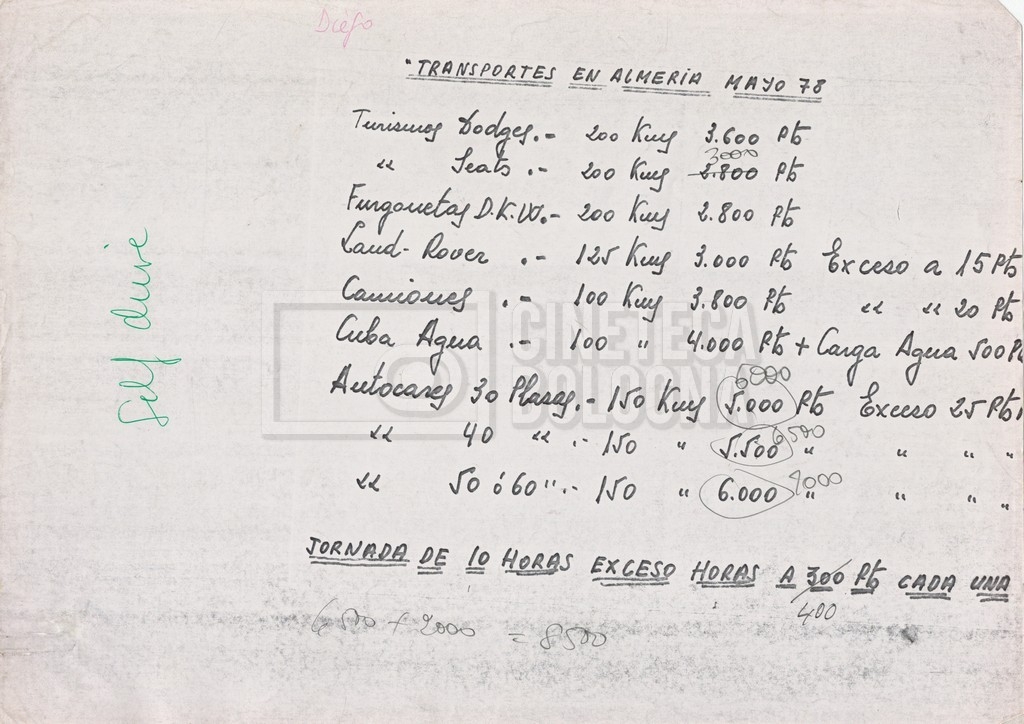 Diego
"TRANSPORTES EN ALMERIA MAYO 78
Turismos Dodges.- 200 Kms 3.600 Pts
3000
“ Seats .- 200 Kms 2.800 Pts
Furgonetas D.K.W.- 200 Kms 2.800 Pts
Land-Rover .- 125 Kms 3.000 Pts Exceso a 15 Pts
Camiones .- 100 Kms 3.800 Pts “ “ 20 Pts
Cuba Agua .- 100 " 4.000 Pts + Carga Agua 500 Pt
6000
Autocares 30 Plazas.- 150 Kms 5.000 Pts Exceso 25 Pts
6500
“ 40 “ .- 150 " 5.500 " " " "
7000
“ 50 ó 60 " .- 150 " 6.000 " " " "
JORNADA DE 10 HORAS EXCESO HORAS A 300 Pts CADA UNA
400
6500 + 2000 = 8500
Self drive
CINETECA
BOLOGNA